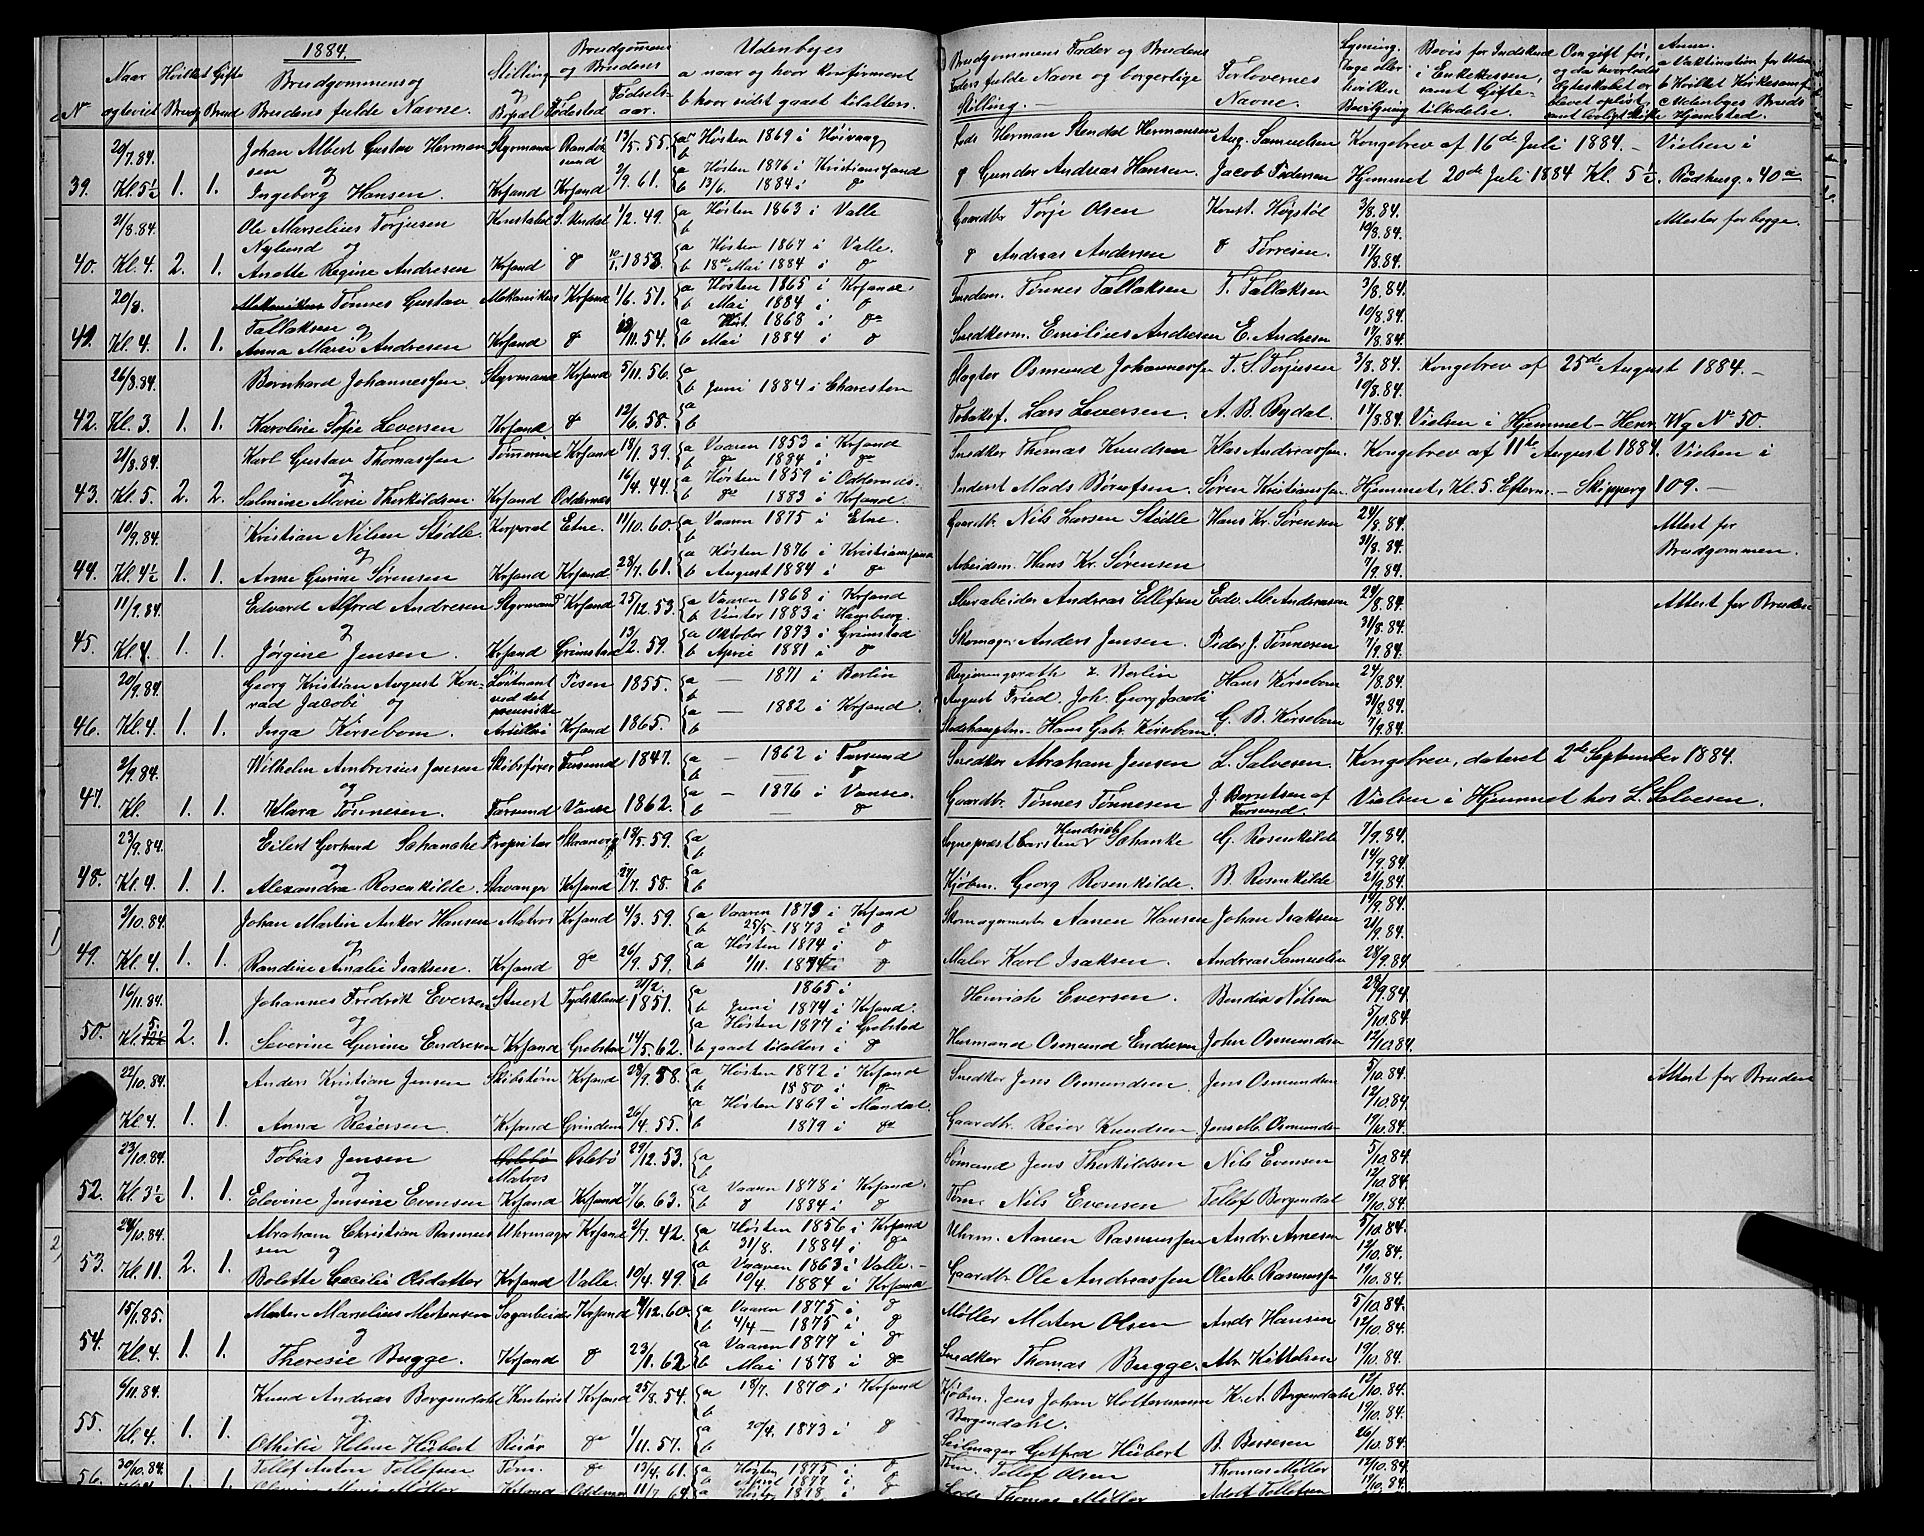 1884.
N
Naar
ægteviet
Hvilket
Brudg
Gifte
Brud
Brudgommens og
Brudens fulde Navne.
Stilling
og
Bopæl
Brudgommens
og Brudens
Fødested
Fødsels-
aar.
Udenbyes
a naar og hvor konfirmeret
b hvor sidst gaaet til alters.
Brudgommens Fader og Brudens
Faders fulde Navn og borgerlige
Stilling.
Forlovernes
Navne.
39.
20/7.84.
Kl. 5½
1. 1.
Johan Albert Gustav Herman
sen og
Ingeborg Hansen.
Styrmand
Krsand
Randø
sund
Krsand
13/5. 55.
2/9. 61.
a Høsten 1869 i Høivaag
b
a Høsten 1876 i Kristianssand
b 13/6. 1884 i do
Herman Stendal Hermansen
Gunder Andreas Hansen.
Aug. Samuelsen
Jacob Pedersen
Kongebrev af 16de Juli 1884. - Vielsen i
Hjemmet 20de Juli 1884 Kl. 5½. Rådhusg. 40 a
40.
2/8.84.
Kl. 4.
2. 1.
Ole Marselius Torjusen
Nylund og
Anette Regine Andresen
Konstabel
Krsand
1/2. 49.
1853
a Høsten 1863 i Valle
a Høsten 1867 i Valle.
b 18de Mai 1884 i do
Gaardbr Torje Olsen
Andreas Andersen
Konst. Høgstøl
do Torresen.
3/8.84.
10/8.84.
17/8.84.
Attester for begge.
41.
20/8.
Kl. 4.
1. 1.
Mekaniker Tønnes Gustav
Tallaksen og
Anna Marie Andresen
Mekaniker
Krsand
Krsand
do
1/6. 51.
/11. 54.
a Høsten 1865 i Krsand.
b Mai 1884 i do
a Høst. 1868 i do
b Mai 1884 i do
Smedem. Tønnes Tallaksen
Snedkerm. Emilius Andresen
T. Tallaksen
E. Andresen
3/8.84.
10/8.84.
17/8.84.
42.
26/8.84.
Kl. 3.
1. 1.
Bernhard Johannessen
og
Karoline Sofie Leversen
Styrmand
Krsand
Krsand
do
5/11. 56.
12/6. 58.
a
b Juni 1884 i Chareston
a
b
Slagter Osmund Johannessen
Lars Leversen.
T. S. Torjusen
A. B. Bydal.
3/8.84.
10/8.84.
17/8.84
Kongebrev af 25de August 1884. -
Vielsen i Hjemmet - Henr. Wg No 50.
43.
21/8.84.
Kl. 5.
2. 2.
Karl Gustav Thomassen
og
Salmine Marie Therkildsen
Tømmermd
Krsand
Krsand
Oddernes
18/1. 39.
16/4. 44.
a Vaaren 1853 i Krsand
b do 1884 i do
a Høsten 1859 i Oddernes.
b do 1883 i Krsand.
Snedker Thomas Knudsen
Inderst Mads Børufsen.
Klas Andreassen.
Søren Kristiansen.
Kongebrev af 11te August 1884. Vielsen i
Hjemmet, Kl. 5. Efterm. - Skipperg 109. -
44.
10/9.84.
Kl. 4½
1. 1.
Kristian Nilsen Stødle.
og
Anne Gurine Sørensen
Korporal
Krsand
Etne.
Krsand
11/10. 60.
23/7. 61.
a Vaaren 1875 i Etne.
b
a Høsten 1876 i Kristianssand
b August 1884 i do
Gaardbr. Nils Larsen Stødle
Arbeidsm. Hans Kr. Sørensen
Hans Kr. Sørensen
24/8.84.
31/8.84.
7/9.84.
Attest for
Brudgommen.
45.
11/9.84.
Kl. 4.
1. 1.
Edvard Alfred Andresen
og
Jørgine Jensen.
Styrmand
Krsand
Krsand
Grimstad
25/12.53.
13/2. 59.
a Vaaren 1868 i Krsand
b Vinter 1883 i Hamburg.
a Oktober 1873 i Grimstad
b April 1881 i do
Andreas Ellefsen
Skomager Anders Jensen.
Edv. M. Andreasen
Peder J. Tønnesen
24/8.84.
31/8.84.
7/9.84.
Attest for Bruden
46.
20/9.84.
Kl. 4.
1. 1.
Georg Kristian August Kon-
rad Jacobi og
Inga Kirsebom.
Løitnant
ved det
preussiske
Artilleri
Posen
Krsand
1855.
1865.
a - 1871 i Berlin
b
a - 1882 i Krsand.
b
Regjeringsrath z. Berlin
August Fried. Joh. Georg Jacobi
Stadshauptm. Hans Gabr. Kirsebom
Hans Kirsebom
G. B. Kirsebom
24/8.84.
31/8.84.
7/9.84.
47.
2/9.84.
Kl.
1. 1.
Wilhelm Ambrosius Jensen
og
Klara Tønnesen.
Skibsfører
Farsund
Farsund
Vanse
1847.
1862.
a - 1862 i Farsund
b - do
a - 1876 i Vanse.
b - do
Snedker Abraham Jensen
Gaardbr. Tønnes Tønnesen
L. Salvesen.
J. Berntsen af
Farsund.
Kongebrev, dateret 2de September 1884.
Vielsen i Hjemmet hos L. Salvesen.
48.
23/9.84.
Kl. 4.
1. 1.
Eilert Gerhard Schanche
og
Alexandra Rosenkilde.
Proprietær
Stavanger
Krsand
18/5. 59.
/7. 58.
a
b
a
b
Sogneprest Carsten Hendrich Schanke
Kjøbm. Georg Rosenkilde.
G. Rosenkilde
B. Rosenkilde
7/9.84.
14/9.84.
21/9.84.
49.
3/10.84.
Kl. 4.
1. 1.
Johan Martin Anker Hansen
og
Randine Amalie Isaksen.
Matros
Krsand
Krsand
do
4/3. 59.
26/9. 59.
a Vaaren 1873 i Krsand
b 25/5. 1873 i do
a Høsten 1874 i do
b 1/11. 1874 i do
Skomagermester Aanen Hansen
Maler Karl Isaksen.
Johan Isaksen
Andreas Samuelsen
14/9.84.
21/9.84.
28/9.84
50.
16/11.84.
Kl. 5.
2. 1.
Johannes Fredrik Eversen
og
Severine Gurine Endresen
Stuert
Krsand
Tydskland
Grebstad
21/2.
1851.
14/5. 62.
a 1865 i
b Juni 1874 i Krsand.
a Høsten 1877 i Grebstad
b gaaet tilalters i do
Henrich Eversen.
Husmand Osmund Endresen
Bendix Nilsen
John Osmundsen
28/9.84.
5/10.84.
12/10.84.
22/10.84.
Kl. 4.
1. 1.
Anders Kristian Jensen
og
Anna Reiersen.
Skibstøm.
Krsand
Krsand
Grindem
23/9. 58.
26/4. 55.
a Høsten 1872 i Krsand
b 1880 i do
a Høsten 1869 i Mandal.
b 1879 i do
Snedker Jens Osmundsen
Gaardbr. Reier Knudsen
Jens Osmundsen
Jens M. Osmundsen
5/10.84.
12/10.84.
19/10.84.
Attest for Bruden
52.
23/10.84.
Kl. 3½
1. 1.
Tobias Jensen
og
Elevine Jensine Evensen
Oslebø
Matros
Krsand
Oslebø
Krsand
29/12.53.
7/6. 63.
a
b
a Vaaren 1878 i Krsand.
b do 1884 i do
Sømand Jens Therkildsen
Tøm. Nils Evensen
Nils Evensen
Tellef Bergendal
5/10.84.
12/10.84.
19/10.84.
53.
24/10.84.
Kl. 11.
2. 1.
Abraham Christian Rasmus
sen og
Bolette Cecilie Olsdatter
Uhrmager
Krsand
Krsand
Valle.
2/7. 42.
10/4. 49.
a Høsten 1856 i Krsand
b 31/8. 1884 i do
a Vaaren 1863 i Valle.
b 10/4. 1884 i Krsand
Uhrm. Aanen Rasmussen
Gaardbr Ole Andreassen
Andr. Arnesen
Ole M. Rasmussen
5/10.84.
12/10.84.
19/10.84.
54.
15/1.85.
Kl. 4.
1. 1.
Morten Marselius Mortensen
og
Theresie Bugge.
Sagarbeider
Krsand
Krsand
do
/12. 60.
23/1. 62
a Vaaren 1875 i do
b 4/4 - 1875 i do
a Vaaren 1877 i do
b Mai 1878 i do
Møller Morten Olsen
Snedker Thomas Bugge.
Andr. Hansen
Ab. Kittelsen
5/10.84.
12/10.84.
19/10.84.
55.
6/11.84.
Kl. 4.
1. 1.
Knud Andreas Bergendahl
og
Othilie Helene Hübert
Kontorist
Risør
Krsand
do
25/8. 54.
1/11. 57.
a 18/7. 1870 i Krsand
b
a 20/4. 1873 i do
b
Kjøbm. Jens Johan Holtermann
Bergendahl.
Seilmager Gotfred Hübert
K. A. Bergendahl
B. Bessesen
12/10.84.
19/10.84.
26/10.84.
56.
30/10.84.
1. 1.
Tellef Anton Tellefsen
Tøm.
Krsand
do
13/4.61.
a Høsten 1875 i do
b April 1877 i do
a Høsten 1878 i do
Tøm. Tellef Olsen
Thomas Møller
Thomas Møller
Adolf Tellefsen
12/10.84.
19/10.84.